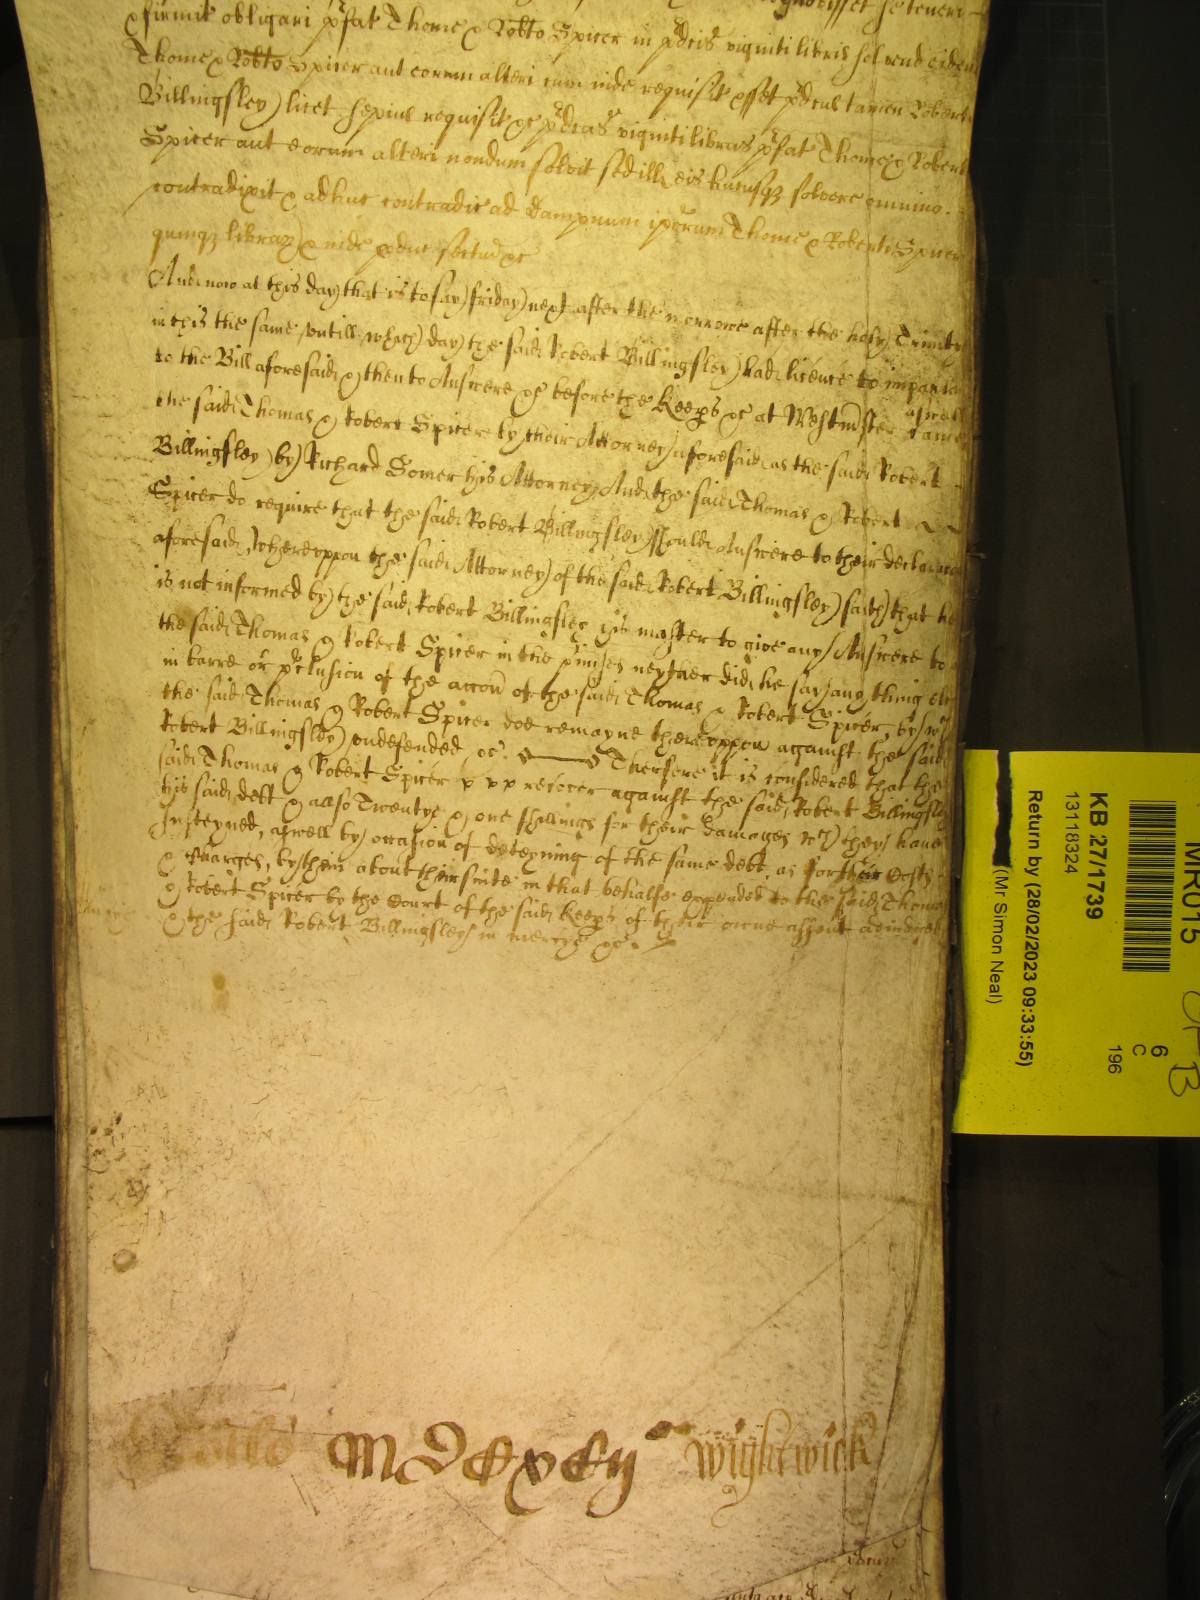 & firmit obligari p̱fat Thome & Robto Spicer in p̱dcis viginti libris solvend eidem
Thome & Robto Spicer aut eorum alteri cum inde requisit esset p̱dcus tamen Robert
Billingsley licet sepius requisit &c p̱dcas viginti libras p̱fat Thome & Robert
Spicer aut eorum alteri nondum solvit sed ill eis hucusq solvere omnino
contradixit & adhuc contradic ad dampnum ip̱orum Thome & Roberti Spicer
quinq librar & inde p̱duc sectam &c
And now at this day that is to say friday next after the morrowe after the holy Trinity
in this the same untill which day the said Robert Billingsley had licence to imparle
to the Bill aforesaid & then to Answere &c before the Keep̱s &c at Westmster came aswell
the said Thomas & Robert Spicer by their Attorney aforesaid as the said Robert
Billingsley by Richard Somer his Attorney, And the said Thomas & Robert
Spicer do require that the said Robert Billingsley should Answere to their declarac
aforesaid, whereuppon the said Attorney of the said Robert Billingsley saith that he
is not informed by the said Robert Billingsley his master to give any Answere to
the said Thomas & Robert Spicer in the p̱misses neyther did he say any thing els
in barre or p̱clusion of the accon of the said Thomas & Robert Spicer, by wch
the said Thomas & Robert Spicer doe remayne thereuppon against the said
Robert Billingsley undefended &c. Therfore it is considered that the
said Thomas & Robert Spicer recover against the said Robert Billingsley
his said debt & allso Twentye & one shillings for their damages wch they have
susteyned, aswell by occasion of deteyning of the same debt, as for their Costs
& Charges, by them about their suite in that behalfe expended to the said Thomas
& Robert Spicer by the Court of the said Keep̱s of their owne assent adiudged
& the said Robert Billingsley in mercye &c.
Wightwick
MR015
6
C
196
KB 27/1739
13118324
Return by (28/02/2023 09:33:55)
(Mr Simon Neal)